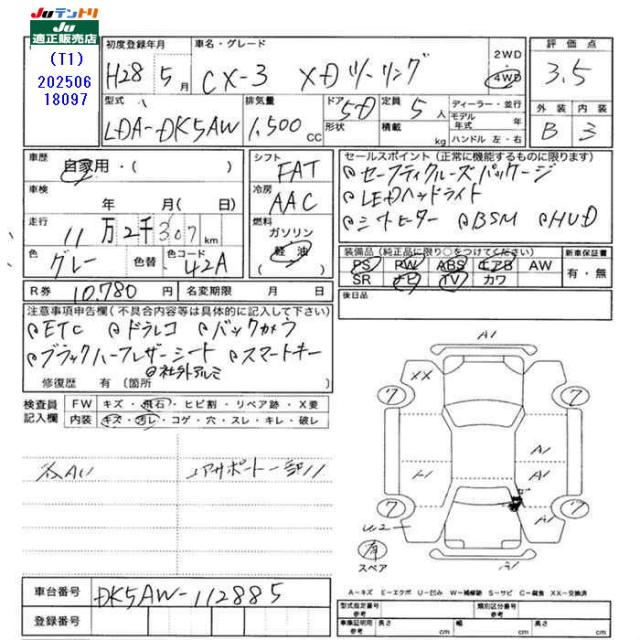 JUテントリ
JU
適正販売店
(T1)
202506
18097
初度登録年月 車名・グレード 2WD 評価点
H28 5月 CX-3 XDツーリング 4WD 3.5
型式 排気量 ドア 5D 定員 5人 ディーラー・並行 外装 内装
LDA-DK5AW 1,500CC 形状 積載 kg モデル年式 年 B 3
ハンドル 左・右
車歴 自家用・( ) シフト FAT セールスポイント(正常に機能するものに限ります)
車検 年 月(日) 冷房 AAC セーフティクルーズパッケージ
LEDヘッドライト
走行 11万2千307km 燃料 ガソリン 軽油 シートヒーター BSM HUD
色 グレー 色替 色コード 42A
装備品(純正品に限り○をつけてください) 新車保証書
PS PW ABS エアB AW 有・無
SR ナビ TV カワ
R券 10,780円 名変期限 月 日 後日品
注意事項申告欄(不具合内容等は具体的に記入して下さい)
ETC ドラレコ バックカメラ
ブラックハーフレザーシート スマートキー
社外アルミ
修復歴 有(箇所
検査員記入欄 FW キズ・飛石・ヒビ割・リペア跡・X要
内装 キズ・汚レ・コゲ・穴・スレ・キレ・破レ
A1
XX
7 7
A1
A1
7 7
A1
W2
有
スペア
車台番号 DK5AW-112885
登録番号
A-キズ E-エクボ U-凹み W-補修跡 S-サビ C-腐食 XX-交換済
型式指定番号 参考 類別区分番号 参考
車庫証明用 参考 長さ cm 幅 cm 高さ cm